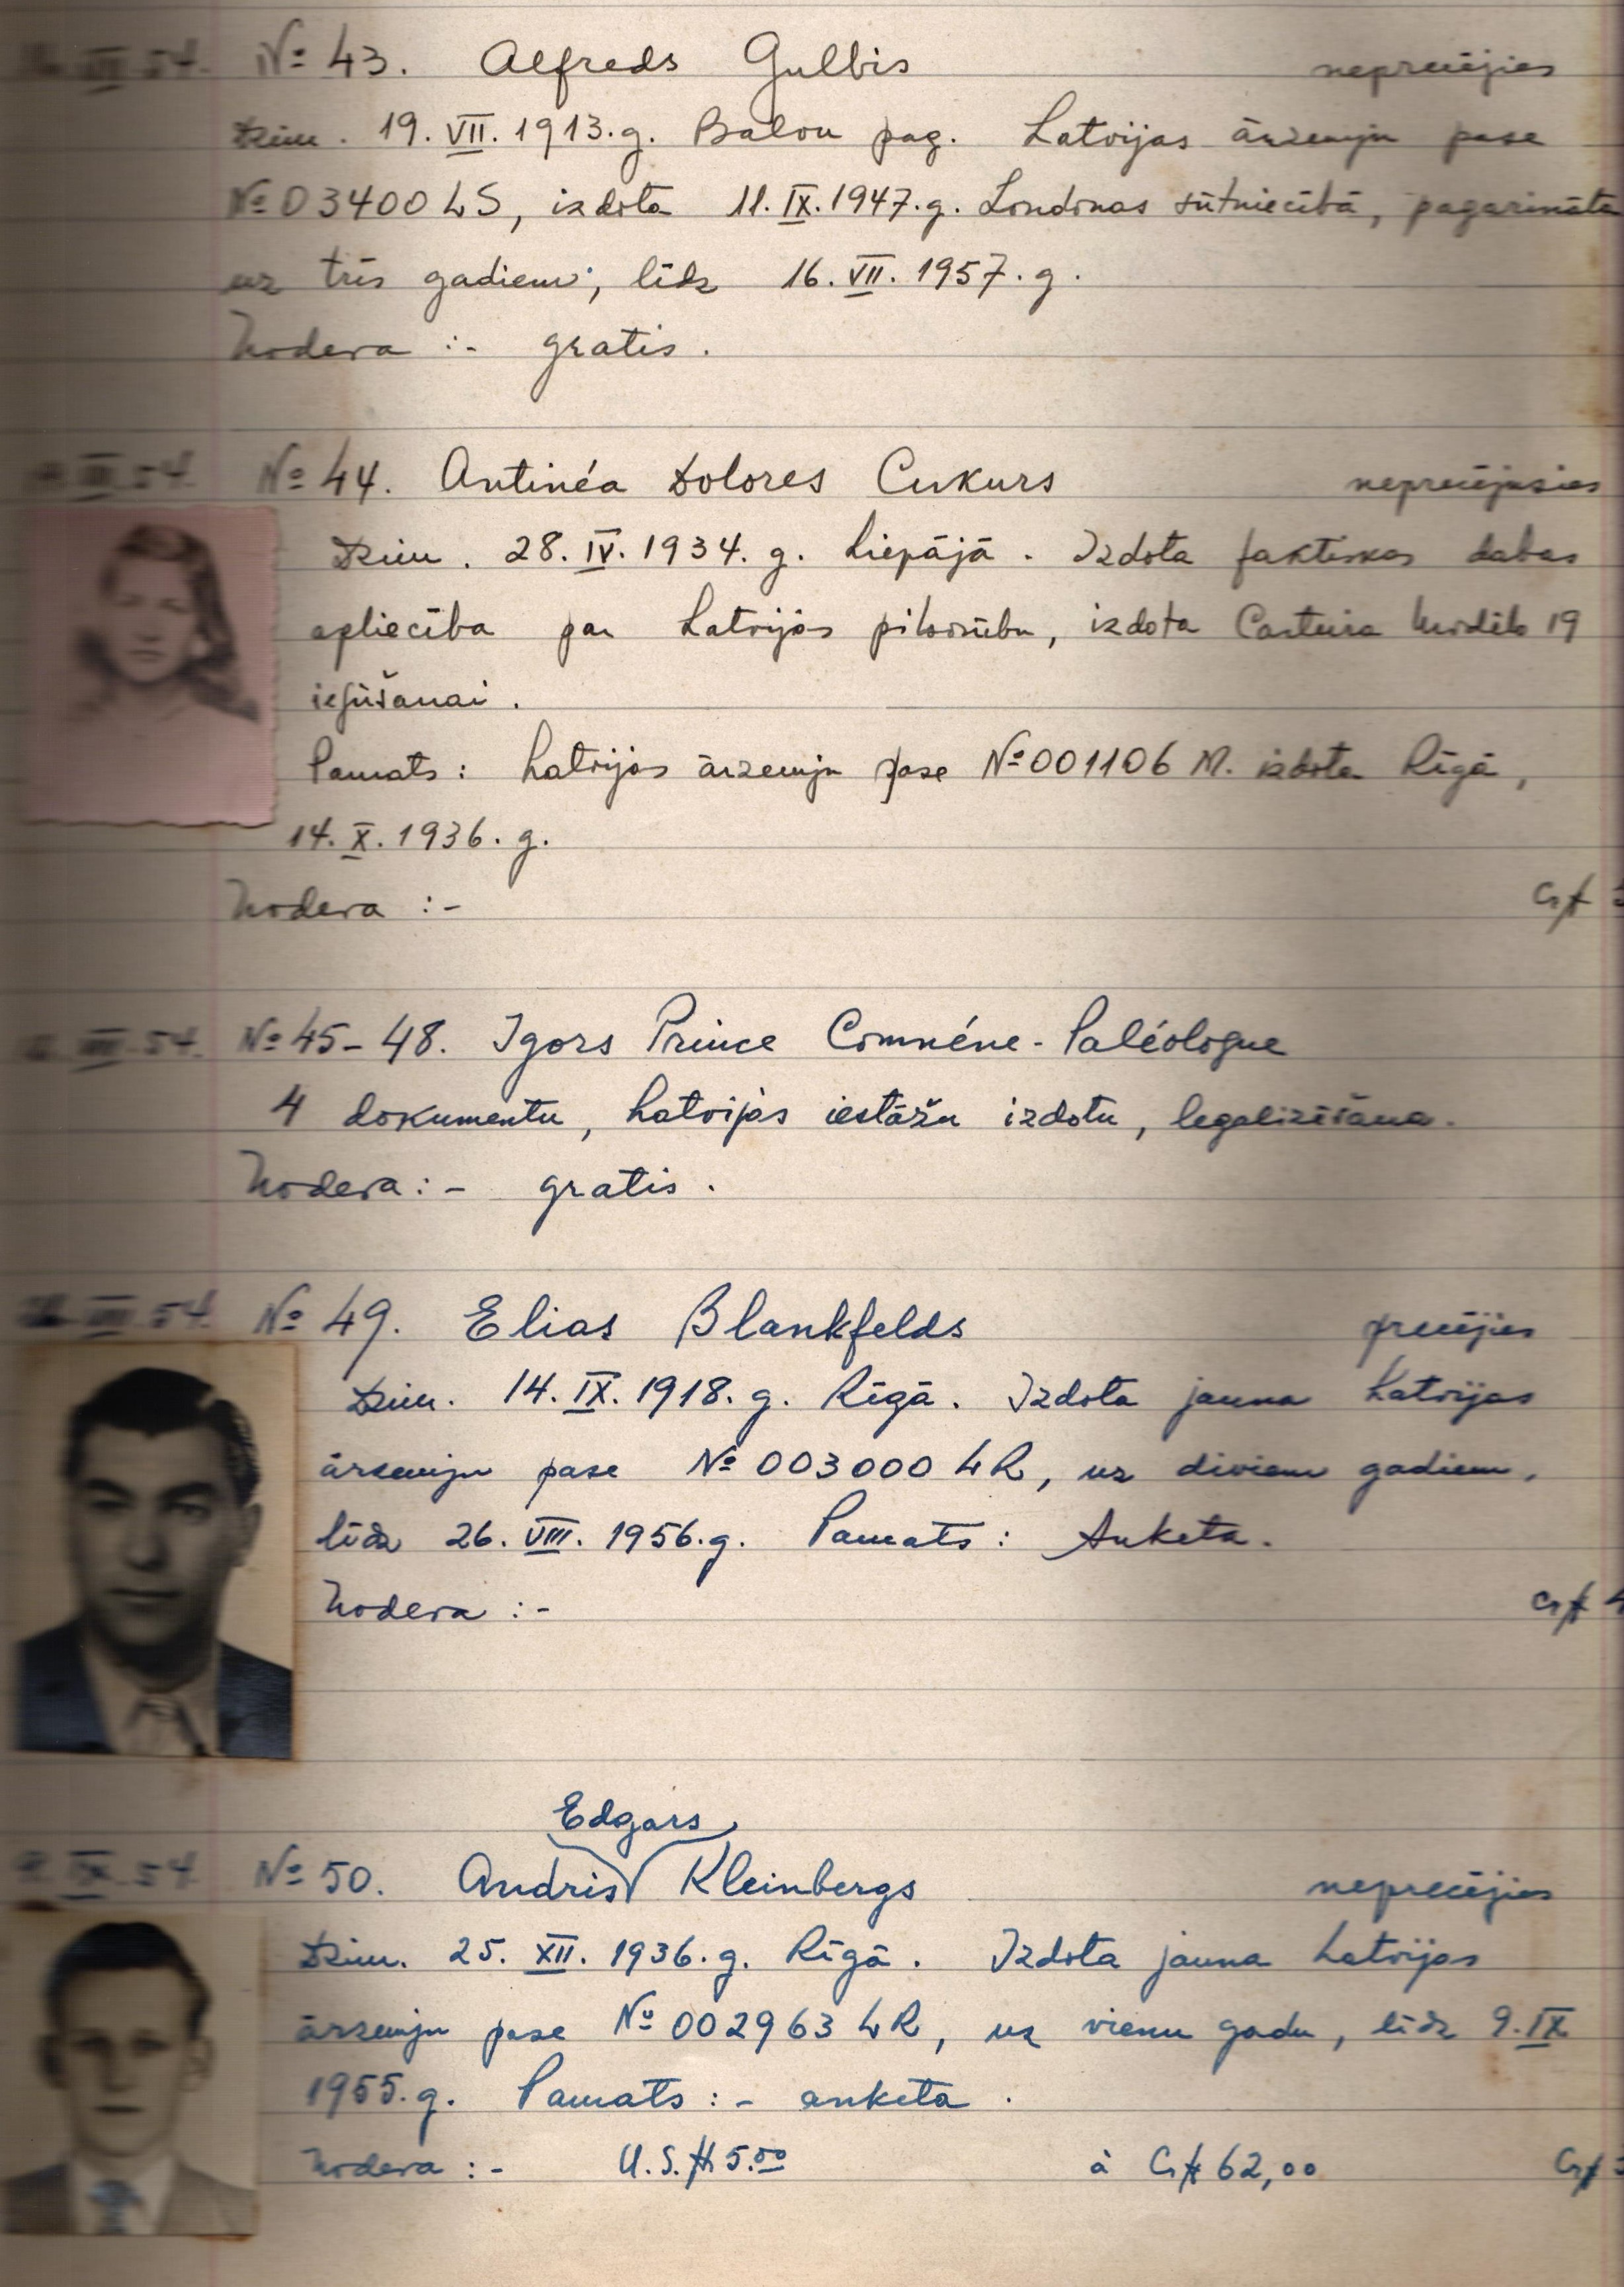 VII. 54. № 43. Alfreds Gulbis neprecējies
Dzim. 19. VII. 1913. g. Balvu pag. Latvijas ārzemju pase
№ 03400 LS, izdota 11. IX. 1947. g. Londonas sūtniecībā, pagarināta
uz trīs gadiem, līdz 16. VII. 1957. g.
Nodeva :- gratis.
54. № 44. Antinéa Dolores Cukurs neprecējusies
Dzim. 28. IV. 1934. g. Liepājā. Izdota faktiskas dabas
apliecība par Latvijas pilsonību, izdota Carteira Modélo 19
iegūšanai.
Pamats : Latvijas ārzemju pase № 001106 M. izdota Rīgā,
14. X. 1936. g.
Nodeva :- Cr$
54. № 45-48. Igors Prince Comnéne-Paléologue
4 dokumentu, Latvijas iestāžu izdotu, legalizēšana.
Nodeva :- gratis.
VIII. 54. № 49. Elias Blankfelds precējies
Dzim. 14. IX. 1918. g. Rīgā. Izdota jauna Latvijas
ārzemju pase № 003000 LR, uz diviem gadiem,
līdz 26. VIII. 1956. g. Pamats : Anketa.
Nodeva :- Cr$ 4
Edgars
9. IX. 54. № 50. Andris Kleinbergs neprecējies
Dzim. 25. XII. 1936. g. Rīgā. Izdota jauna Latvijas
ārzemju pase № 002963 LR, uz vienu gadu, līdz 9. IX
1955. g. Pamats :- anketa.
Nodeva :- U.S.$ 5.00 à Cr$ 62,00 Cr$